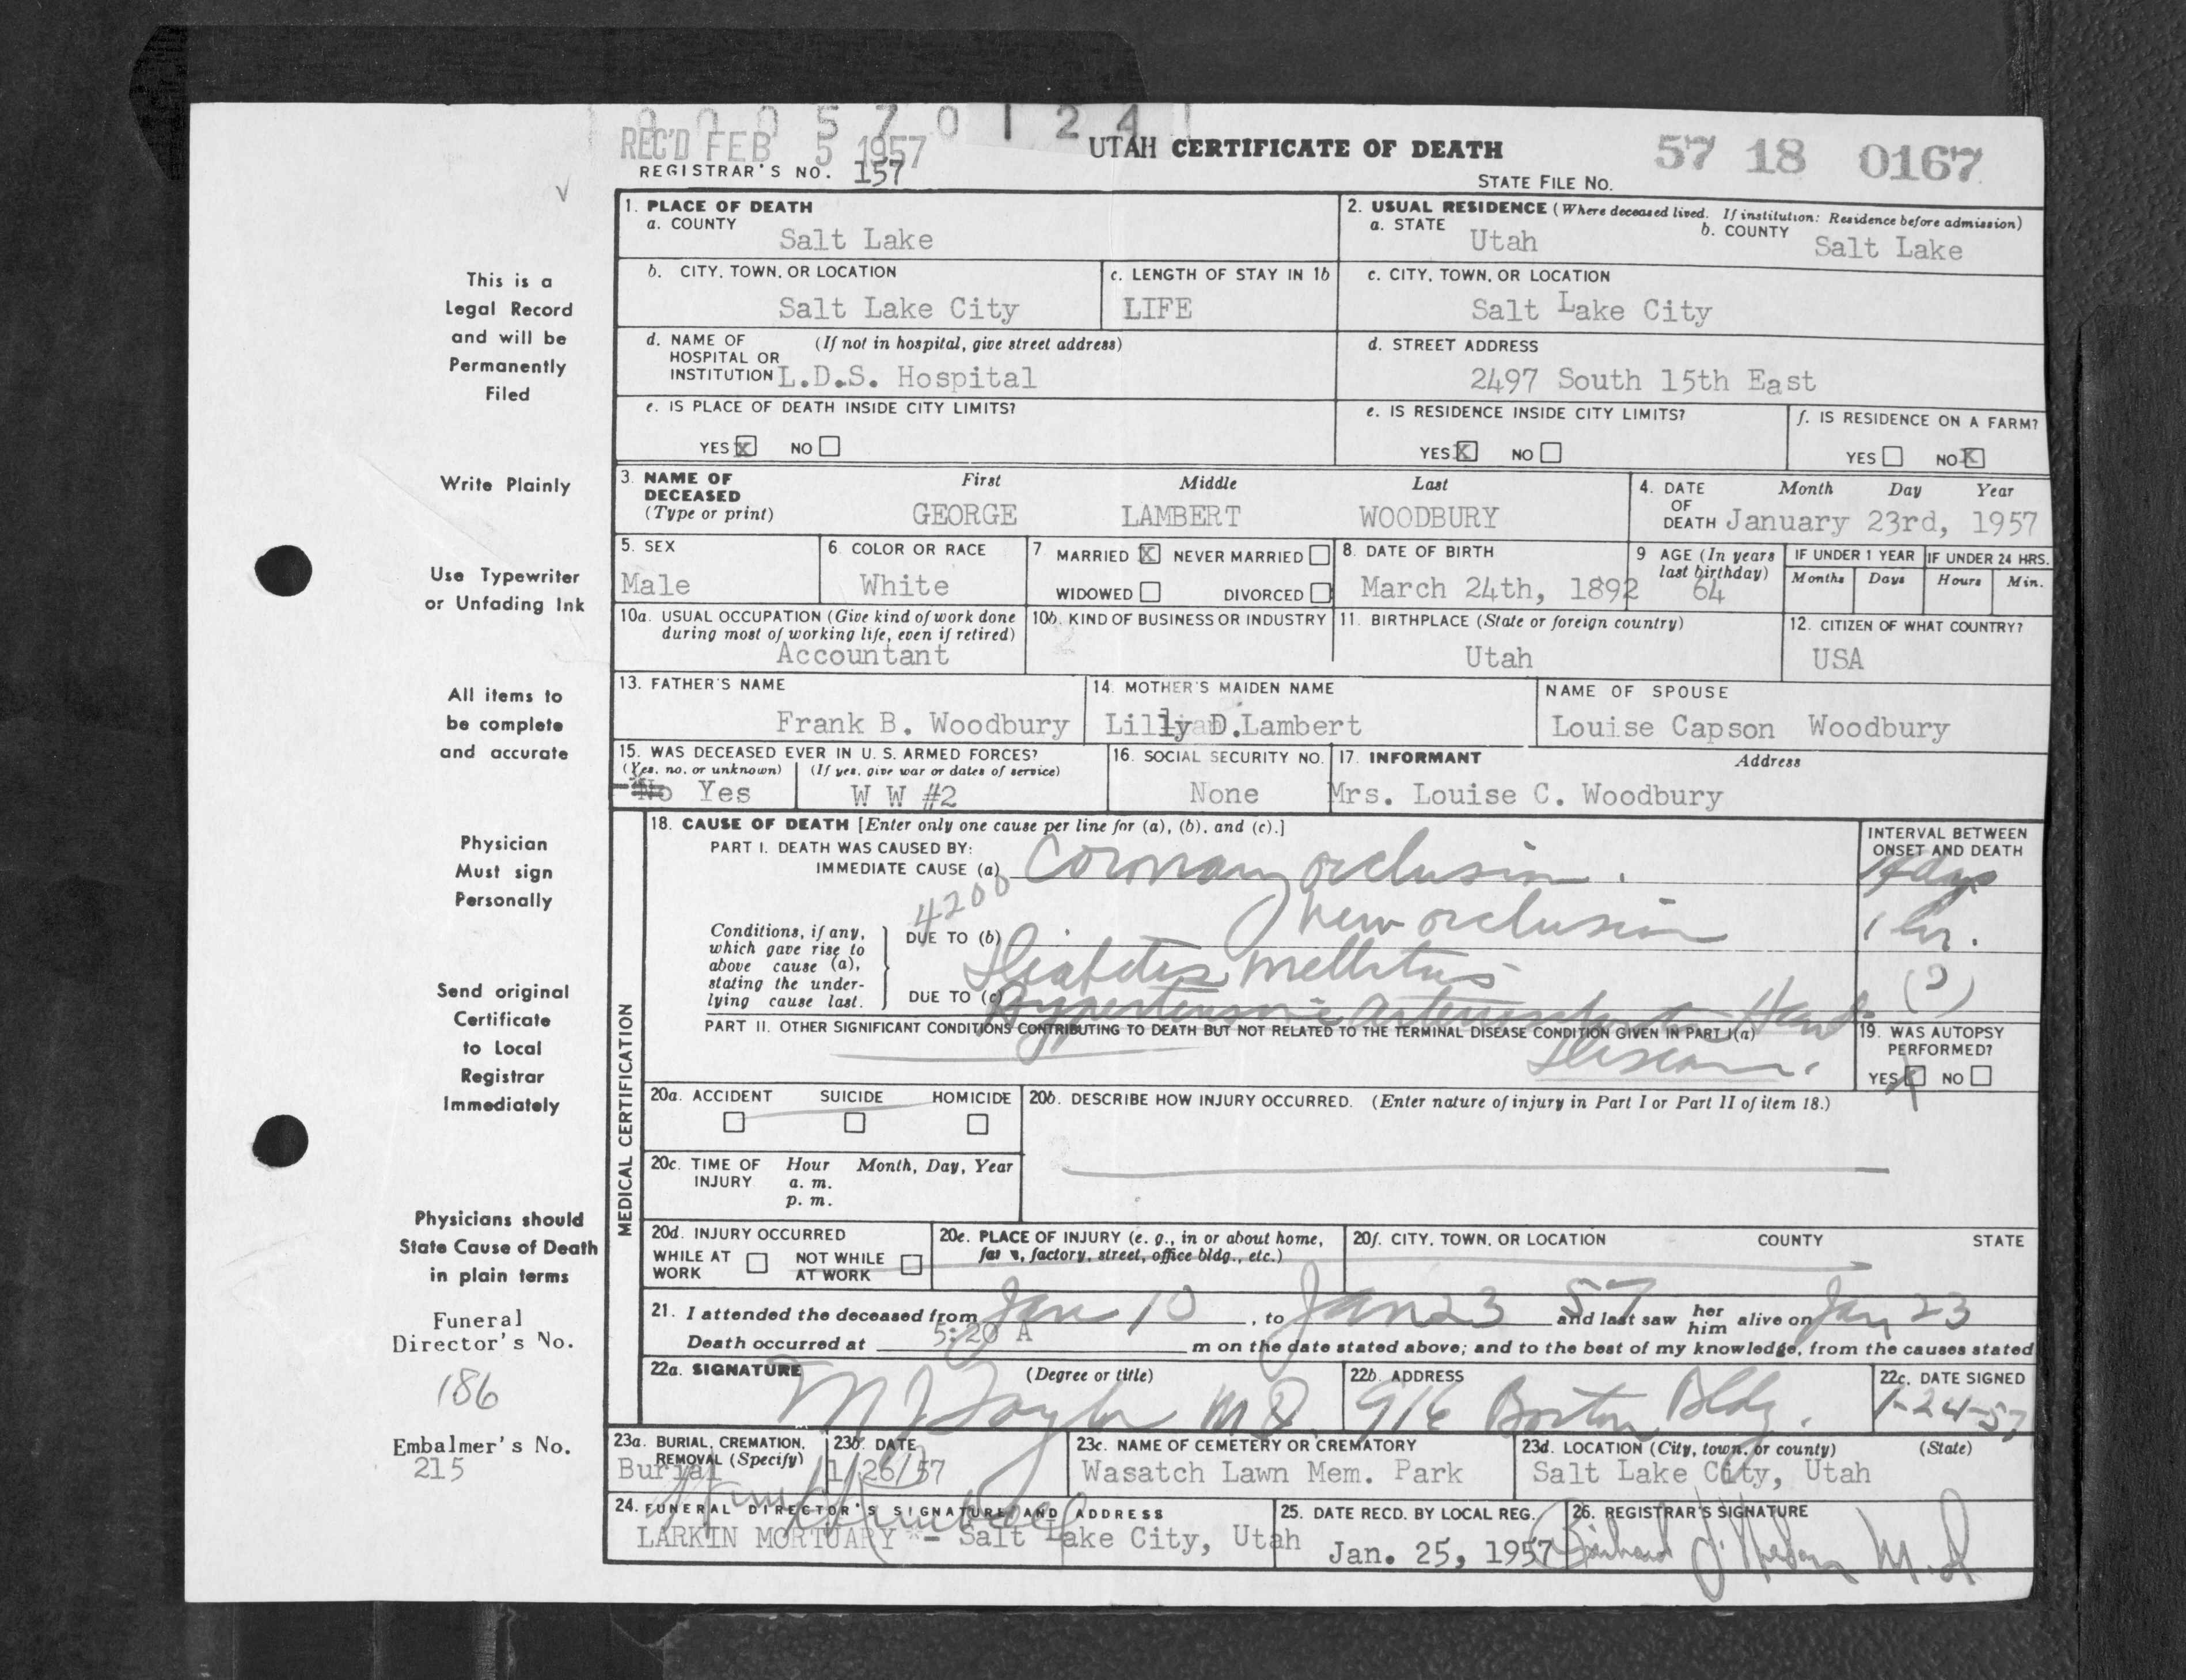 0 0 0 5 7 0 1 2 4 1
REC'D FEB 5 1957
UTAH CERTIFICATE OF DEATH
57 18 0167
REGISTRAR'S NO. 157
STATE FILE NO.
This is a
Legal Record
and will be
Permanently
Filed
Write Plainly
Use Typewriter
or Unfading Ink
All items to
be complete
and accurate
Physician
Must sign
Personally
Send original
Certificate
to Local
Registrar
Immediately
Physicians should
State Cause of Death
in plain terms
Funeral
Director's No.
186
Embalmer's No.
215
1. PLACE OF DEATH
a. COUNTY
Salt Lake
2. USUAL RESIDENCE (Where deceased lived. If institution: Residence before admission)
a. STATE Utah b. COUNTY Salt Lake
b. CITY, TOWN, OR LOCATION
Salt Lake City
c. LENGTH OF STAY IN 1b
LIFE
c. CITY, TOWN, OR LOCATION
Salt Lake City
d. NAME OF (If not in hospital, give street address)
HOSPITAL OR
INSTITUTION L.D.S. Hospital
d. STREET ADDRESS
2497 South 15th East
e. IS PLACE OF DEATH INSIDE CITY LIMITS?
YES X NO
e. IS RESIDENCE INSIDE CITY LIMITS?
YES X NO
f. IS RESIDENCE ON A FARM?
YES NO X
3. NAME OF DECEASED (Type or print)
First Middle Last
GEORGE LAMBERT WOODBURY
4. DATE OF DEATH Month Day Year
January 23rd, 1957
5. SEX
Male
6. COLOR OR RACE
White
7. MARRIED X NEVER MARRIED
WIDOWED DIVORCED
8. DATE OF BIRTH
March 24th, 1892
9 AGE (In years last birthday)
64
IF UNDER 1 YEAR
Months Days
IF UNDER 24 HRS.
Hours Min.
10a. USUAL OCCUPATION (Give kind of work done
during most of working life, even if retired)
Accountant
10b. KIND OF BUSINESS OR INDUSTRY
11. BIRTHPLACE (State or foreign country)
Utah
12. CITIZEN OF WHAT COUNTRY?
USA
13. FATHER'S NAME
Frank B. Woodbury
14. MOTHER'S MAIDEN NAME
Lilly D. Lambert
NAME OF SPOUSE
Louise Capson Woodbury
15. WAS DECEASED EVER IN U. S. ARMED FORCES?
(Yes, no, or unknown) (If yes, give war or dates of service)
No Yes W W #2
16. SOCIAL SECURITY NO.
None
17. INFORMANT Address
Mrs. Louise C. Woodbury
MEDICAL CERTIFICATION
18. CAUSE OF DEATH [Enter only one cause per line for (a), (b), and (c).]
PART I. DEATH WAS CAUSED BY:
IMMEDIATE CAUSE (a) Coronary occlusion.
INTERVAL BETWEEN
ONSET AND DEATH
14 days
4200
Conditions, if any,
which gave rise to
above cause (a),
stating the under-
lying cause last.
DUE TO (b) New occlusion
1 hr.
Diabetes Mellitus
(?)
DUE TO (c) Hypertensive Arteriosclerotic Heart
Disease.
PART II. OTHER SIGNIFICANT CONDITIONS CONTRIBUTING TO DEATH BUT NOT RELATED TO THE TERMINAL DISEASE CONDITION GIVEN IN PART I(a)
19. WAS AUTOPSY
PERFORMED?
YES NO
20a. ACCIDENT SUICIDE HOMICIDE
20b. DESCRIBE HOW INJURY OCCURRED. (Enter nature of injury in Part I or Part II of item 18.)
20c. TIME OF INJURY Hour Month, Day, Year
a. m.
p. m.
20d. INJURY OCCURRED
WHILE AT WORK NOT WHILE AT WORK
20e. PLACE OF INJURY (e. g., in or about home,
farm, factory, street, office bldg., etc.)
20f. CITY, TOWN, OR LOCATION COUNTY STATE
21. I attended the deceased from Jan 10, to Jan 23 57 and last saw her him alive on Jan 23
Death occurred at 5:20 A m on the date stated above; and to the best of my knowledge, from the causes stated
22a. SIGNATURE (Degree or title)
M J Taylor M D
22b. ADDRESS
916 Boston Bldg.
22c. DATE SIGNED
1-24-57
23a. BURIAL, CREMATION,
REMOVAL (Specify)
Burial
23b. DATE
1/26/57
23c. NAME OF CEMETERY OR CREMATORY
Wasatch Lawn Mem. Park
23d. LOCATION (City, town, or county) (State)
Salt Lake City, Utah
24. FUNERAL DIRECTOR'S SIGNATURE AND ADDRESS
LARKIN MORTUARY *- Salt Lake City, Utah
25. DATE RECD. BY LOCAL REG.
Jan. 25, 1957
26. REGISTRAR'S SIGNATURE
M.D